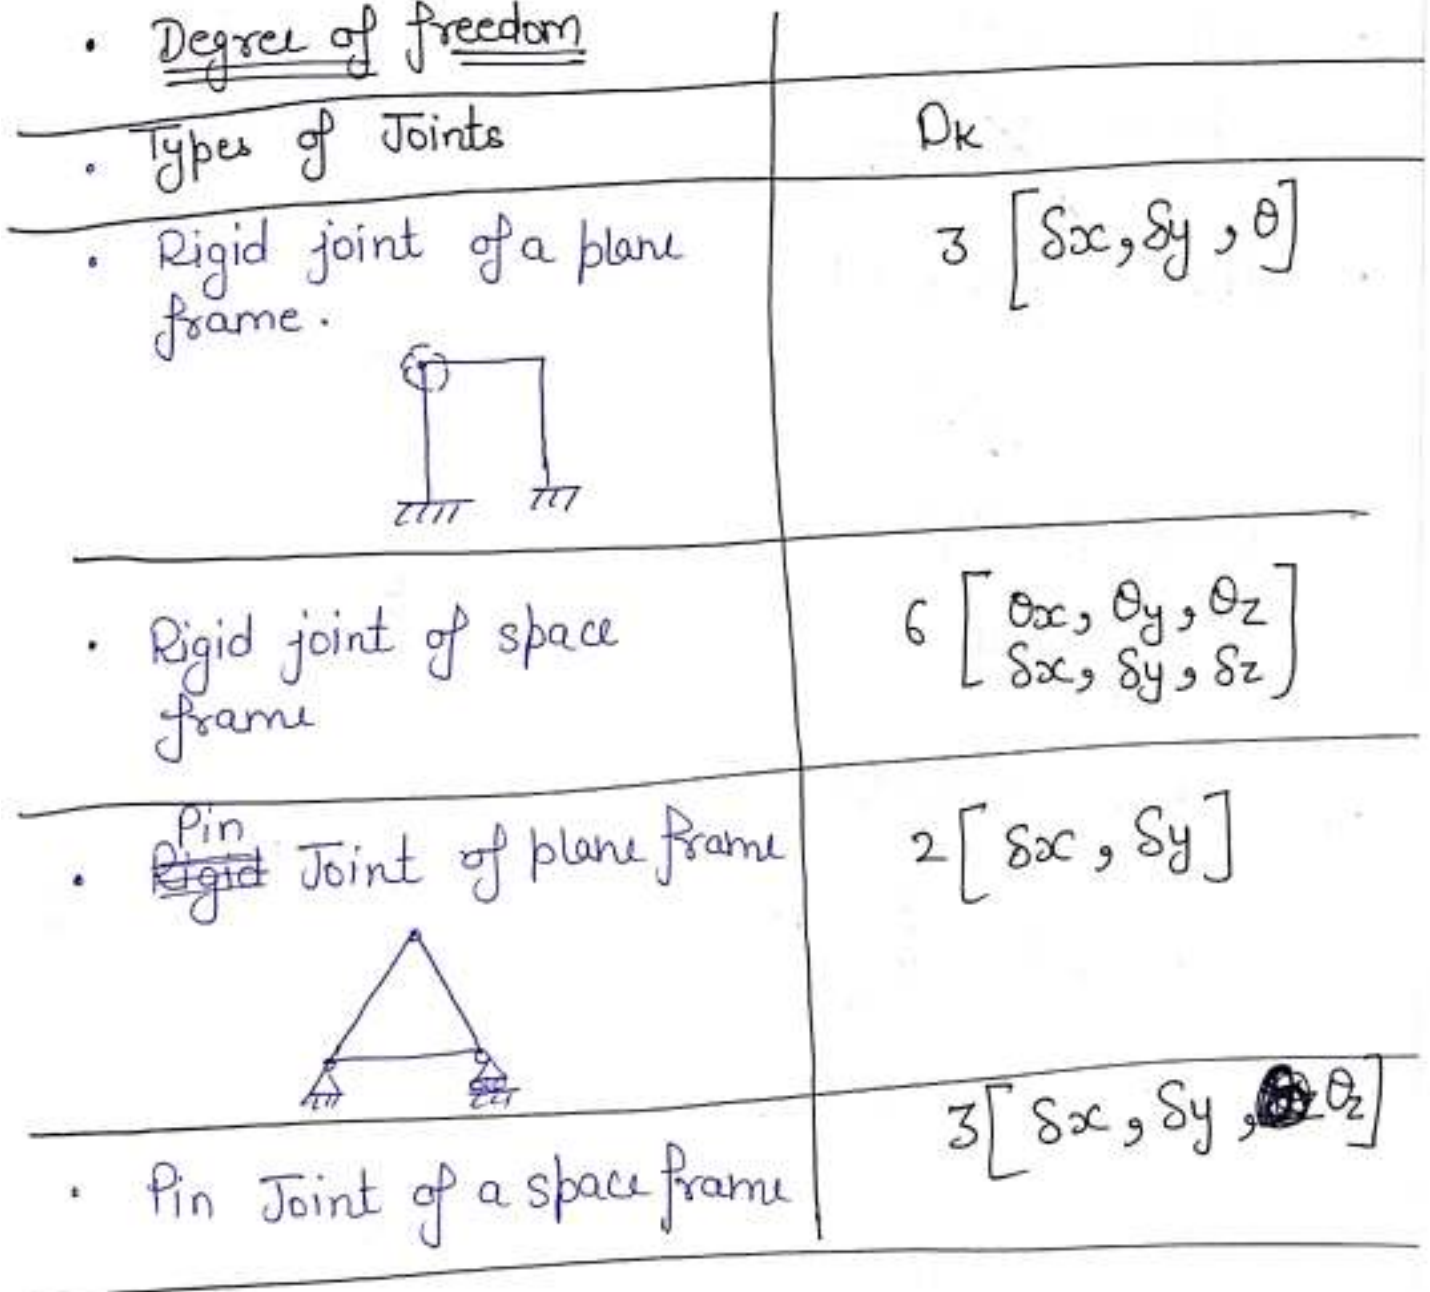 • Degree of freedom
• Types of Joints
Dk
• Rigid joint of a plane
frame.
3 [δx, δy, θ]
• Rigid joint of space
frame
6 [θx, θy, θz
δx, δy, δz]
• Pin Joint of plane frame
2 [δx, δy]
• Pin Joint of a space frame
3[δx, δy, θz]